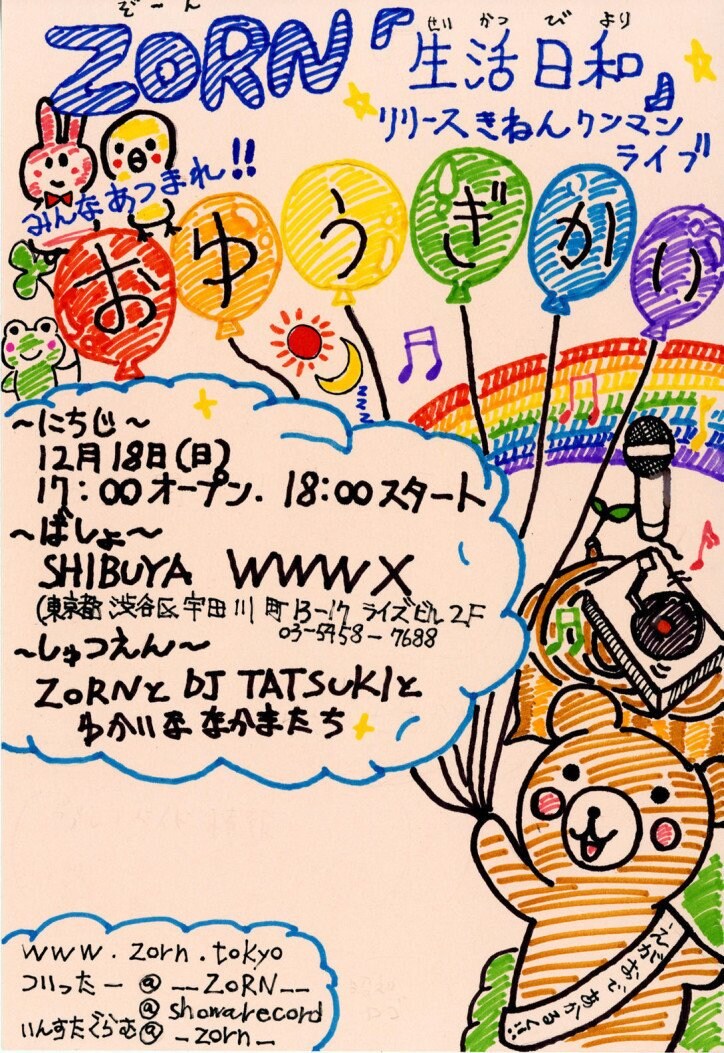 ぞーん
せい かつ び より
ZORN『生活日和』
リリースきねんワンマン
ライブ
みんなあつまれ!!
おゆうぎかい
~にちじ~
12月18日(日)
17:00オープン. 18:00スタート
~ばしょ~
SHIBUYA WWW X
(東京都渋谷区宇田川町13-17 ライズビル2F
03-5458-7688
~しゅつえん~
ZORNと DJ TATSUKIと
ゆかいな なかまたち
あかるく!!
www.zorn.tokyo
ついったー @__ZORN__
@showarecord
いんすたぐらむ@_zorn_
zzz